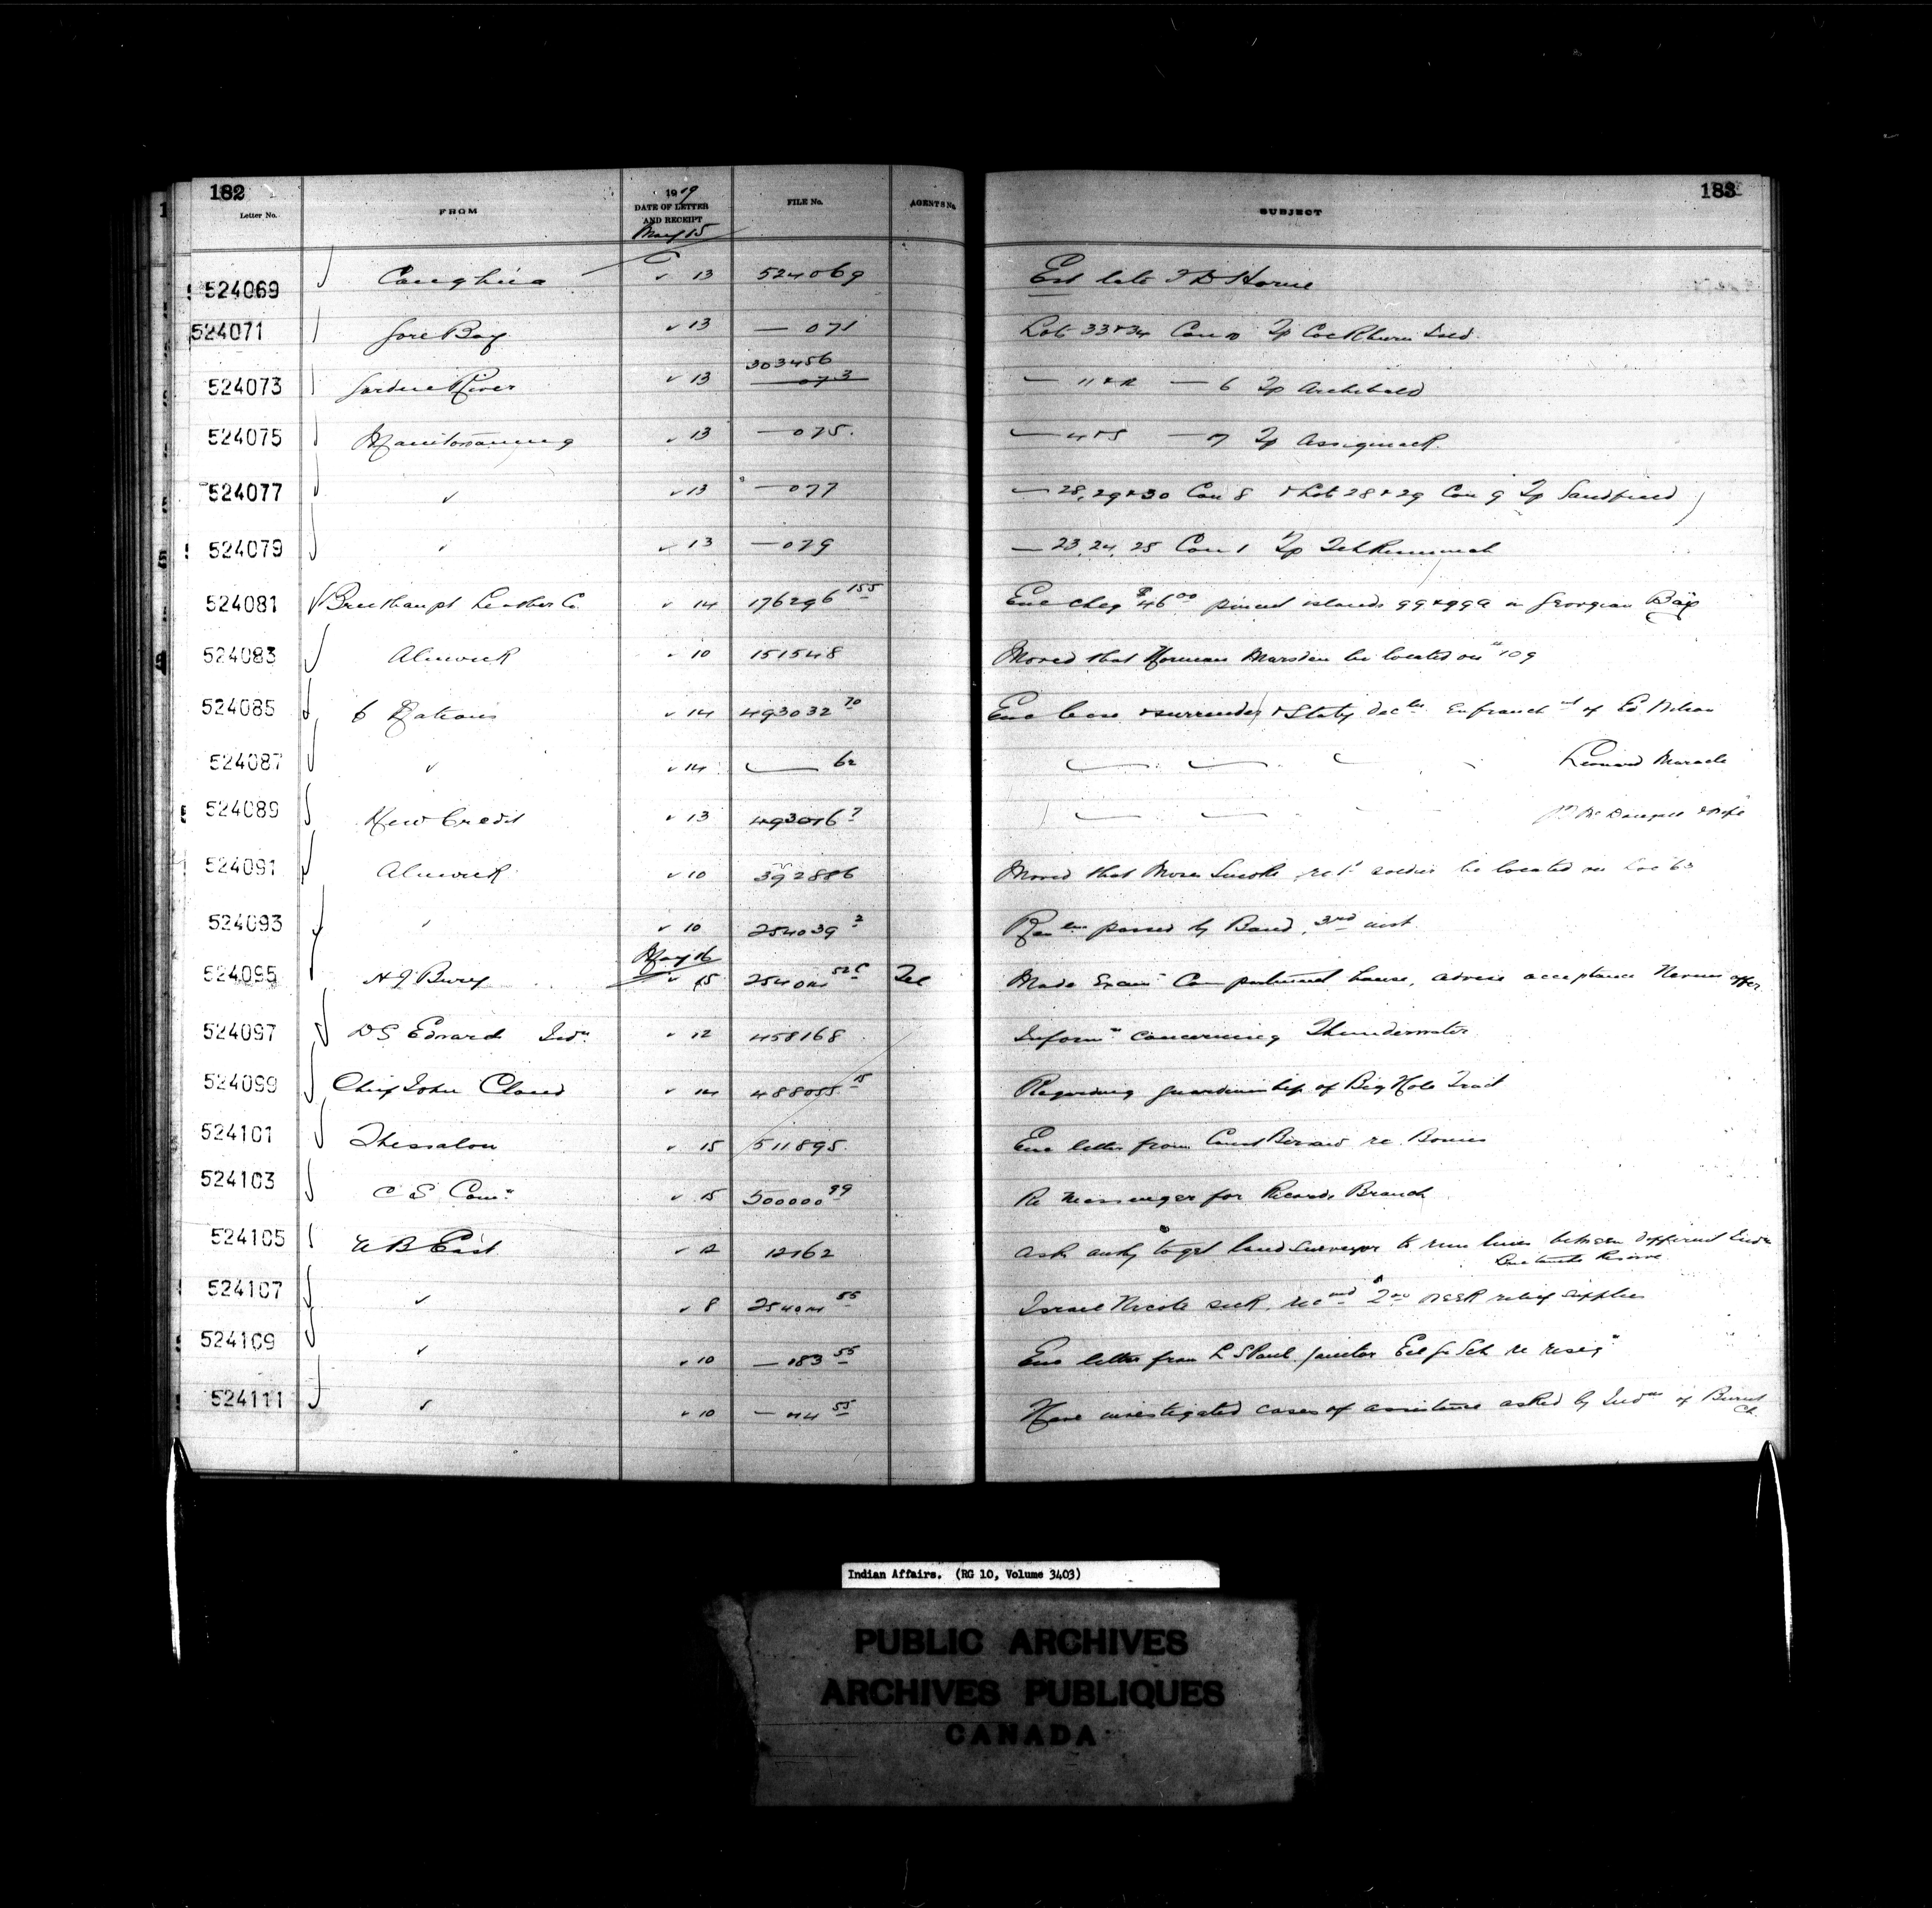 182
183
Letter No.
FROM
1919
DATE OF LETTER
AND RECEIPT
FILE No.
AGENTS No.
SUBJECT
May 15
524069 Caughna ✓ 13 524069 Est late T D Horne
524071 Gore Bay ✓ 13 — 071 Lot 33 & 34 Con Tp Cockburn Isld
303456
524073 Garden River ✓ 13 — 073 — 11 & 12 — 6 Tp Archibald
524075 Manitowaning ✓ 13 — 075. — 4 & 5 — 7 Tp Assiginack
524077 ✓ ✓ 13 — 077 — 28, 29 & 30 Con 8 & Lot 28 & 29 Con 9 Tp Sandfield
524079 ✓ ✓ 13 — 079 — 23, 24, 25 Con 1 Tp Tehkummah
524081 Breithaupt Leather Co. ✓ 14 176296 155 Enc cheq $46 00 islands 99 & 99A in Georgian Bay
524083 Alnwick ✓ 10 151548 Moved that Norman Marsden be located on 109
524085 6 Nations ✓ 14 493032 70 Enc lease & surrender & Staty Dec Enfranch of Ed
524087 ✓ ✓ 14 — 62 Leonard Maracle
524089 New Credit ✓ 13 493016 7 & wife
524091 Alnwick ✓ 10 392886 Moved that Moses Smoke ret soldier be located on Lot 63
524093 ✓ ✓ 10 254039 2 passed by Band, 3rd inst.
May 16
524095 H J Bury ✓ 15 Tel Made Exam house, advise acceptance offer
524097 D S Edward Ind ✓ 12 458168 Inform concerning Thunderwater
524099 Chief John Cloud ✓ 14 488055 15 Regarding guardianship of Big Hole Tract
524101 Thessalon ✓ 15 511895. Enc letter from re
524103 C S Com ✓ 15 500000 99 Re Messenger for Records Branch
524105 ✓ 12 12162 Ask auth to get land surveyor to run lines between different Inds
Reserve
524107 ✓ ✓ 8 55 Israel Nicola sick, relief supplies
524109 ✓ ✓ 10 — 183 55 Enc letter from L S Paul Janitor Eel G Sch re resig
524111 ✓ ✓ 10 — 44 55 Have investigated cases of assistance asked by Inds of Burnt
Ch.
Indian Affairs. (RG 10, Volume 3403)
PUBLIC ARCHIVES
ARCHIVES PUBLIQUES
CANADA